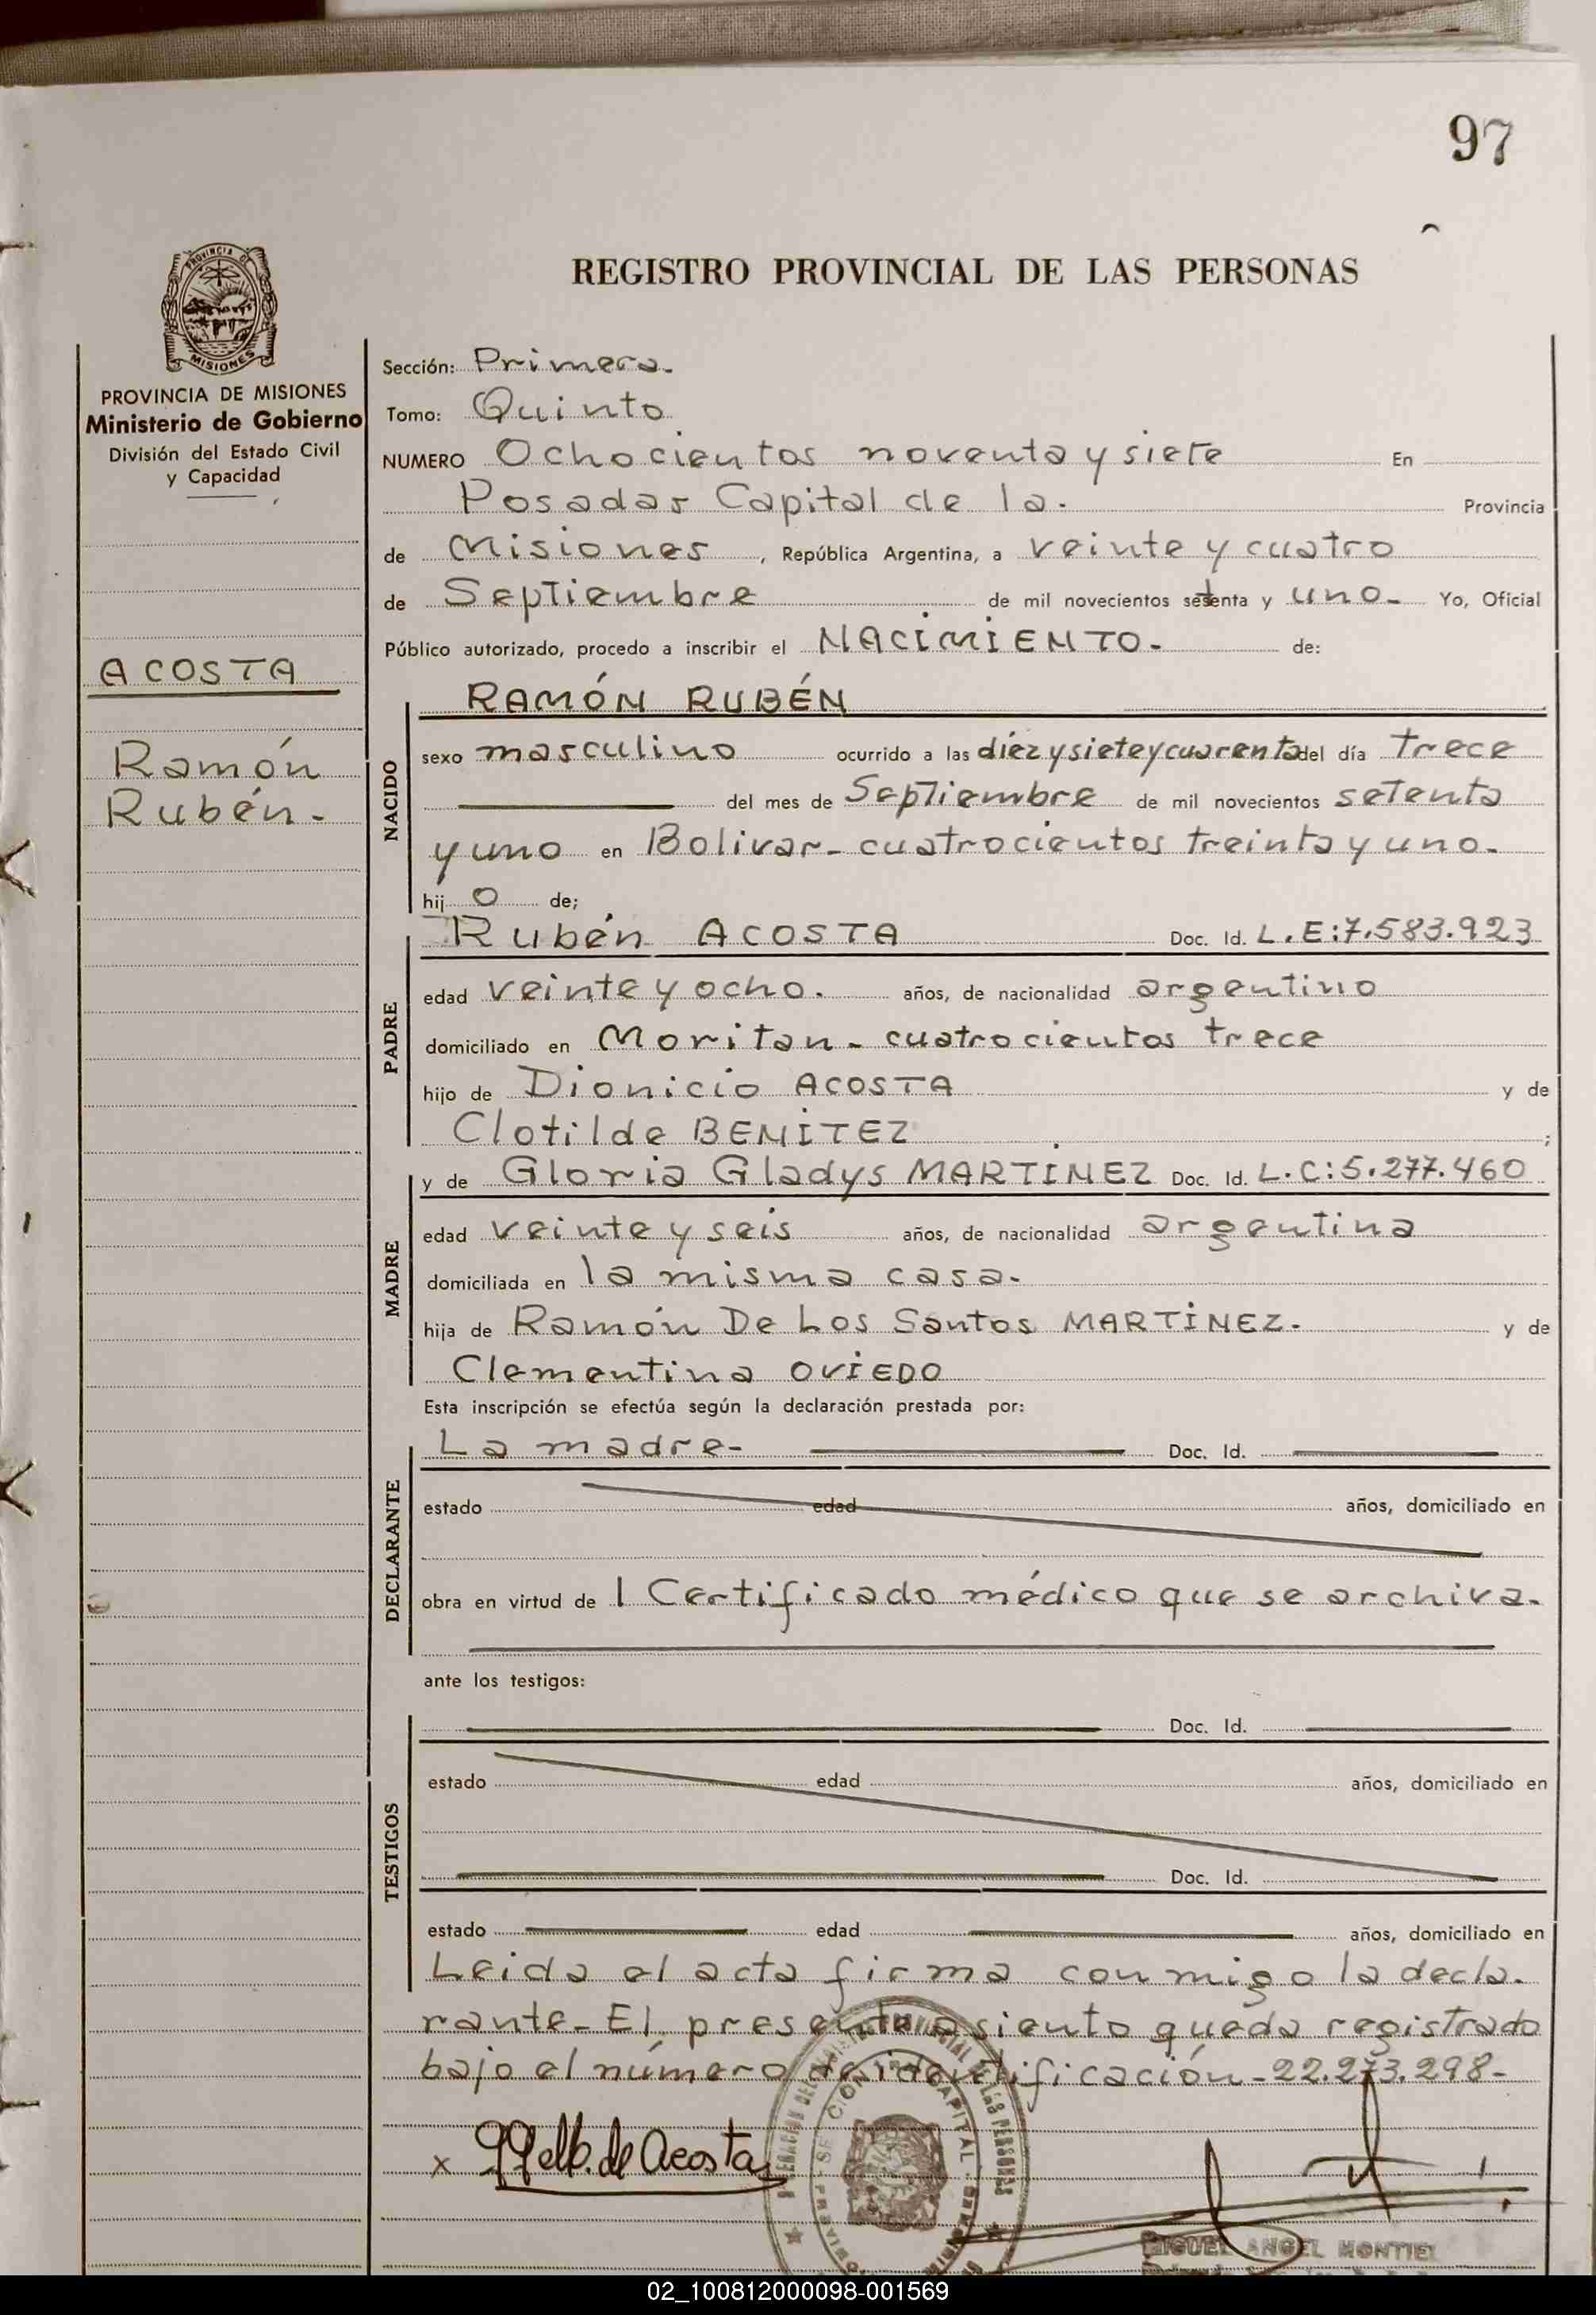 97
REGISTRO PROVINCIAL DE LAS PERSONAS
PROVINCIA DE MISIONES
PROVINCIA DE MISIONES
Ministerio de Gobierno
División del Estado Civil
y Capacidad
ACOSTA
Ramón
Rubén.
Sección: Primera.
Tomo: Quinto
NUMERO Ochocientos noventa y siete En
Posadas Capital de la. Provincia
de Misiones, República Argentina, a veinte y cuatro
de Septiembre de mil novecientos setenta y uno. Yo, Oficial
Público autorizado, procedo a inscribir el NACIMIENTO. de:
NACIDO
RAMÓN RUBÉN
sexo masculino ocurrido a las diez y siete y cuarenta del día trece
del mes de Septiembre de mil novecientos setenta
y uno en Bolivar- cuatrocientos treinta y uno.
hij o de;
PADRE
Rubén ACOSTA Doc. Id. L.E:7.583.923
edad veinte y ocho. años, de nacionalidad argentino
domiciliado en Moritan- cuatrocientos trece
hijo de Dionicio ACOSTA y de
Clotilde BENÍTEZ ;
MADRE
y de Gloria Gladys MARTÍNEZ Doc. Id. L.C:5.277.460
edad veinte y seis años, de nacionalidad argentina
domiciliada en la misma casa.
hija de Ramón De Los Santos MARTÍNEZ. y de
Clementina OVIEDO
Esta inscripción se efectúa según la declaración prestada por:
DECLARANTE
La madre- Doc. Id.
estado edad años, domiciliado en
obra en virtud de 1 Certificado médico que se archiva.
ante los testigos:
TESTIGOS
Doc. Id.
estado edad años, domiciliado en
Doc. Id.
estado edad años, domiciliado en
Leida el acta firma conmigo la decla.
rante- El presente asiento queda registrado
bajo el número de identificación-22.273.298-
x de Acosta
CAPITAL
DE LAS PERSONAS
MIGUEL ANGEL MONTIEL
02_100812000098-001569